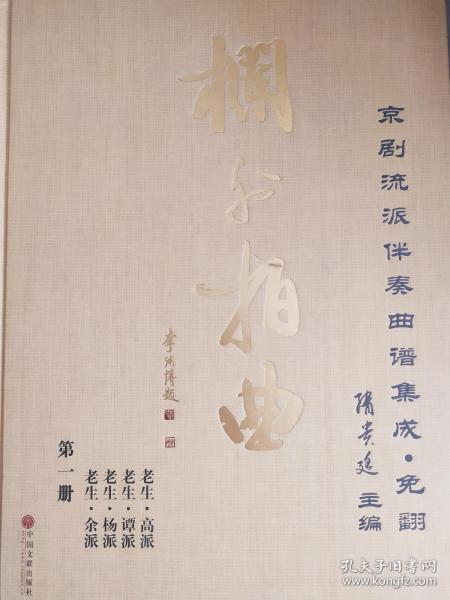 京剧流派伴奏曲谱集成·免翻
隋贵廷 主编
欄外拍曲
老生·高派
老生·谭派
老生·杨派
老生·余派
第一册
中国文联出版社
孔夫子旧书网
kongfz.com